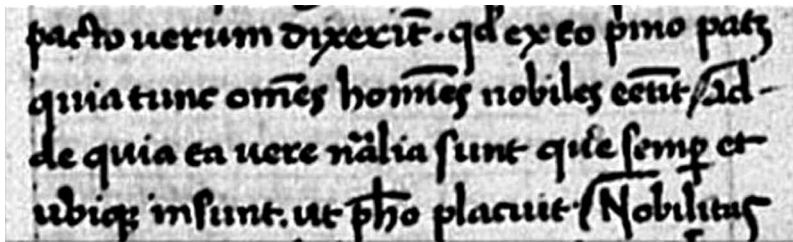 pacto uerum dixerīt. qd̓ ex eo p̄mo patꝫ
quia tunc om̄es homīes nobiles eēnt Ad-
de quia ea uere nāl̄ia sunt que semꝑ et
ubiqꝫ insunt. ut ph̄o placuit Nobilitas